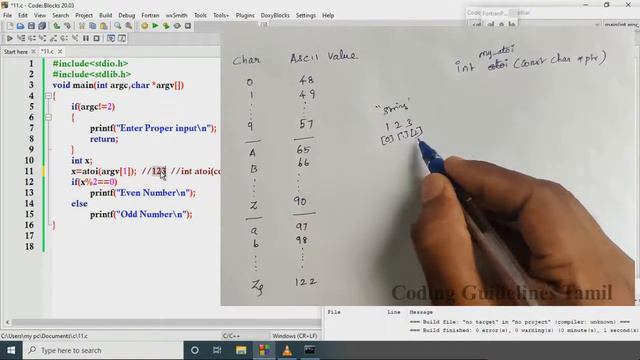 *11.c - Code::Blocks 20.03
Fortran wxSmith Tools Tools+ Plugins DoxyBlocks Settings Help
Start here
*11.c
1 #include<stdio.h>
2 #include<stdlib.h>
3 void main(int argc,char *argv[])
4 {
5 if(argc!=2)
6 {
7 printf("Enter Proper input\n");
8 return;
9 }
10 int x;
11 x=atoi(argv[1]); //123 //int atoi(co
12 if(x%2==0)
13 printf("Even Number\n");
14 else
15 printf("Odd Number\n");
16 }
17
18
Char Ascii Value
0 48
1 49
9 57
A 65
B 66
Z 90
a 97
b 98
Z 122
my_atoi
int atoi (const char *ptr)
"string"
1 2 3
[0] [1] [2]
Coding Guidelines Tamil
File Line Message
=== Build file: "no target" in "no project" (compiler: unknown) ===
=== Build finished: 0 error(s), 0 warning(s) (0 minute(s), 1 second(s)
C:\Users\my pc\Documents\c\11.c
C/C++
Windows (CR+LF)
Type here to search